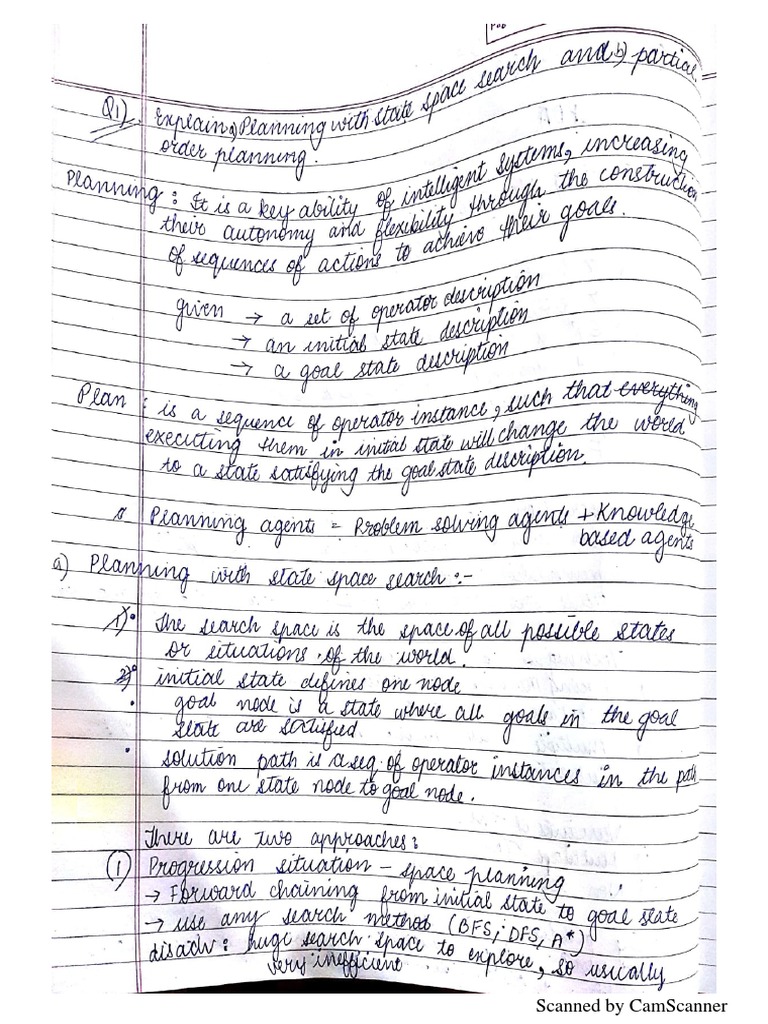 Q1) Explain a) Planning with state space search and b) partial
order planning.
Planning : It is a key ability of intelligent systems, increasing
their autonomy and flexibility through the construction
of sequences of actions to achieve their goals.
given → a set of operator description
→ an initial state description
→ a goal state description
Plan : is a sequence of operator instance, such that everything
executting them in initial state will change the world
to a state satisfying the goal state description.
Planning agents = Problem solving agents + Knowledge
based agents
a) Planning with state space search :-
1) • The search space is the space of all possible states
or situations of the world.
2) • initial state defines one node
• goal node is a state where all goals in the goal
state are satisfied.
• solution path is a seq. of operator instances in the path
from one state node to goal node.
There are two approaches:
(1) Progression situation - space planning
→ Forward chaining from initial state to goal state
→ use any search method (BFS, DFS, A*)
disadv: huge search space to explore, so usually
very inefficient
Scanned by CamScanner